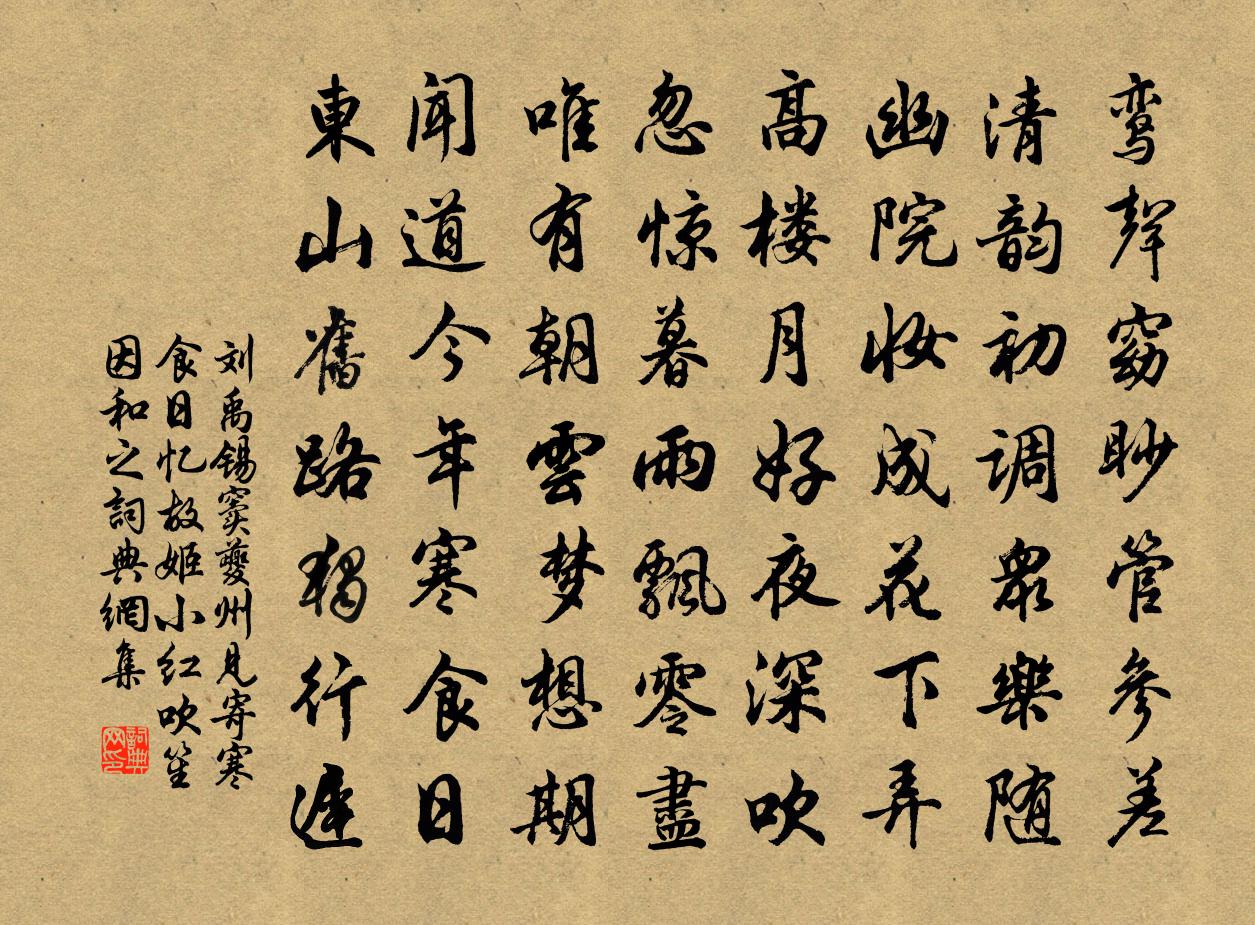 鸾聲窈眇管参差
清韵初调衆樂随
幽院妆成花下弄
高楼月好夜深吹
忽惊暮雨飄零盡
唯有朝雲梦想期
闻道今年寒食日
東山舊路独行遲
刘禹锡窦夔州见寄寒
食日忆故姬小红吹笙
因和之詞典網集
詞典
网印